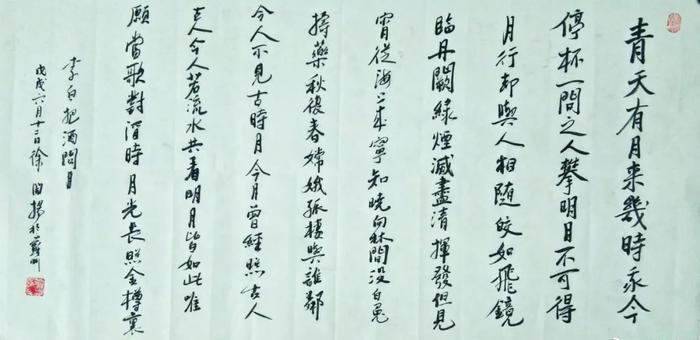 青天有月来幾時我今
停杯一問之人攀明月不可得
月行却與人相随皎如飛鏡
臨丹闕緑煙滅盡清揮發但見
宵從海上来寧知曉向雲間没白兔
搗藥秋復春嫦娥孤棲與誰鄰
今人不見古時月今月曾經照古人
古人今人若流水共看明月皆如此唯
願當歌對酒時月光長照金樽裏
李白把酒問月
戊戌六月十三日徐